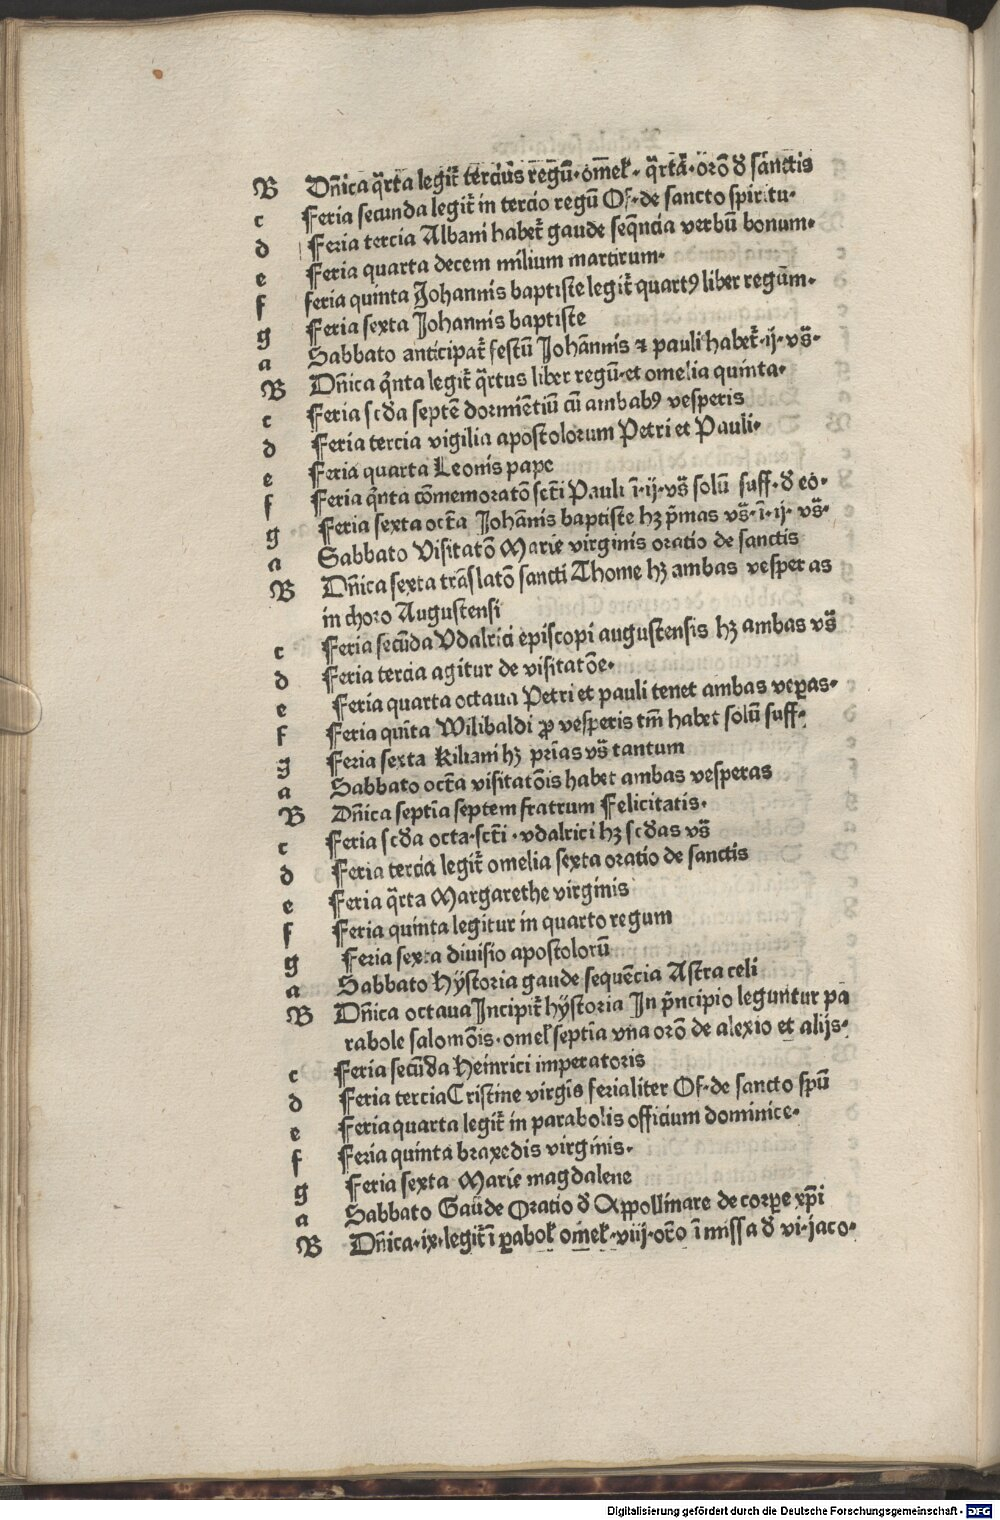 B Dn̄ica q̄rta legit̄ tercius regū· omel̄· q̄rtā· orō ꝺ sanctis
c Feria secunda legit̄ in tercio regū Of· de sancto spiritu·
d Feria tercia Albani habet̄ gaude seq̄ncia verbū bonum·
e Feria quarta decem milium martirum·
f feria quinta Johannis baptiste legit̄ quartꝯ liber regum·
g Feria sexta Johannis baptiste
a Sabbato anticipat̄ festū Johānnis ⁊ pauli habet̄·ij·vs̄·
B Dn̄ica qͥnta legit̄ q̄rtus liber regū·et omelia quinta·
c Feria scꝺa septē dormientiū cū ambabꝯ vesperis
d Feria tercia vigilia apostolorum Petri et Pauli·
e Feria quarta Leonis pape
f Feria qͥnta cōmemoratō scti Pauli ī·ij·vs̄ solū suff·ꝺ eo·
g Feria sexta octa Johānis baptiste hꝫ p̄mas vs̄·ī·ij·vs̄·
a Sabbato Visitatō Marie virginis oratio de sanctis
B Dn̄ica sexta trāslatō sancti Thome hꝫ ambas vesperas
in choro Augustensi
c Feria secūda Vdalrici episcopi augustensis hꝫ ambas vs̄
d Feria tercia agitur de visitatōe·
e Feria quarta octaua Petri et pauli tenet ambas veꝑas·
f Feria quīta Wilibaldi ꝓ vesperis tm̄ habet solū suff·
g Feria sexta Kiliani hꝫ prīas vs̄ tantum
a Sabbato octa visitatōis habet ambas vesperas
B Dn̄ica septīa septem fratrum Felicitatis·
c Feria scꝺa octa·scti·vdalrici hꝫ scꝺas vs̄
d Feria tercia legit̄ omelia sexta oratio de sanctis
e Feria q̄rta Margarethe virginis
f Feria quinta legitur in quarto regum
g Feria sexta diuisio apostolorū
a Sabbato Hÿstoria gaude sequēcia Astra celi
B Dn̄ica octaua Incipit̄ hÿstoria In p̄ncipio leguntur pa
rabole salomōis·omel̄ septīa vna orō de alexio et alijs·
c Feria secūꝺa Heinrici imperatoris
d Feria tercia Cristine virgīs ferialiter Of·de sancto spū
e Feria quarta legit̄ in parabolis officium dominice·
f Feria quinta braxedis virginis·
g Feria sexta Marie magdalene
a Sabbato Gaūde Oratio ꝺ Appollinare de corꝑe xp̄i
B Dn̄ica·ix·legit̄ ī ꝑabol̄ omel̄·viij·orō ī missa ꝺ vi·jaco·
Digitalisierung gefördert durch die Deutsche Forschungsgemeinschaft - DFG